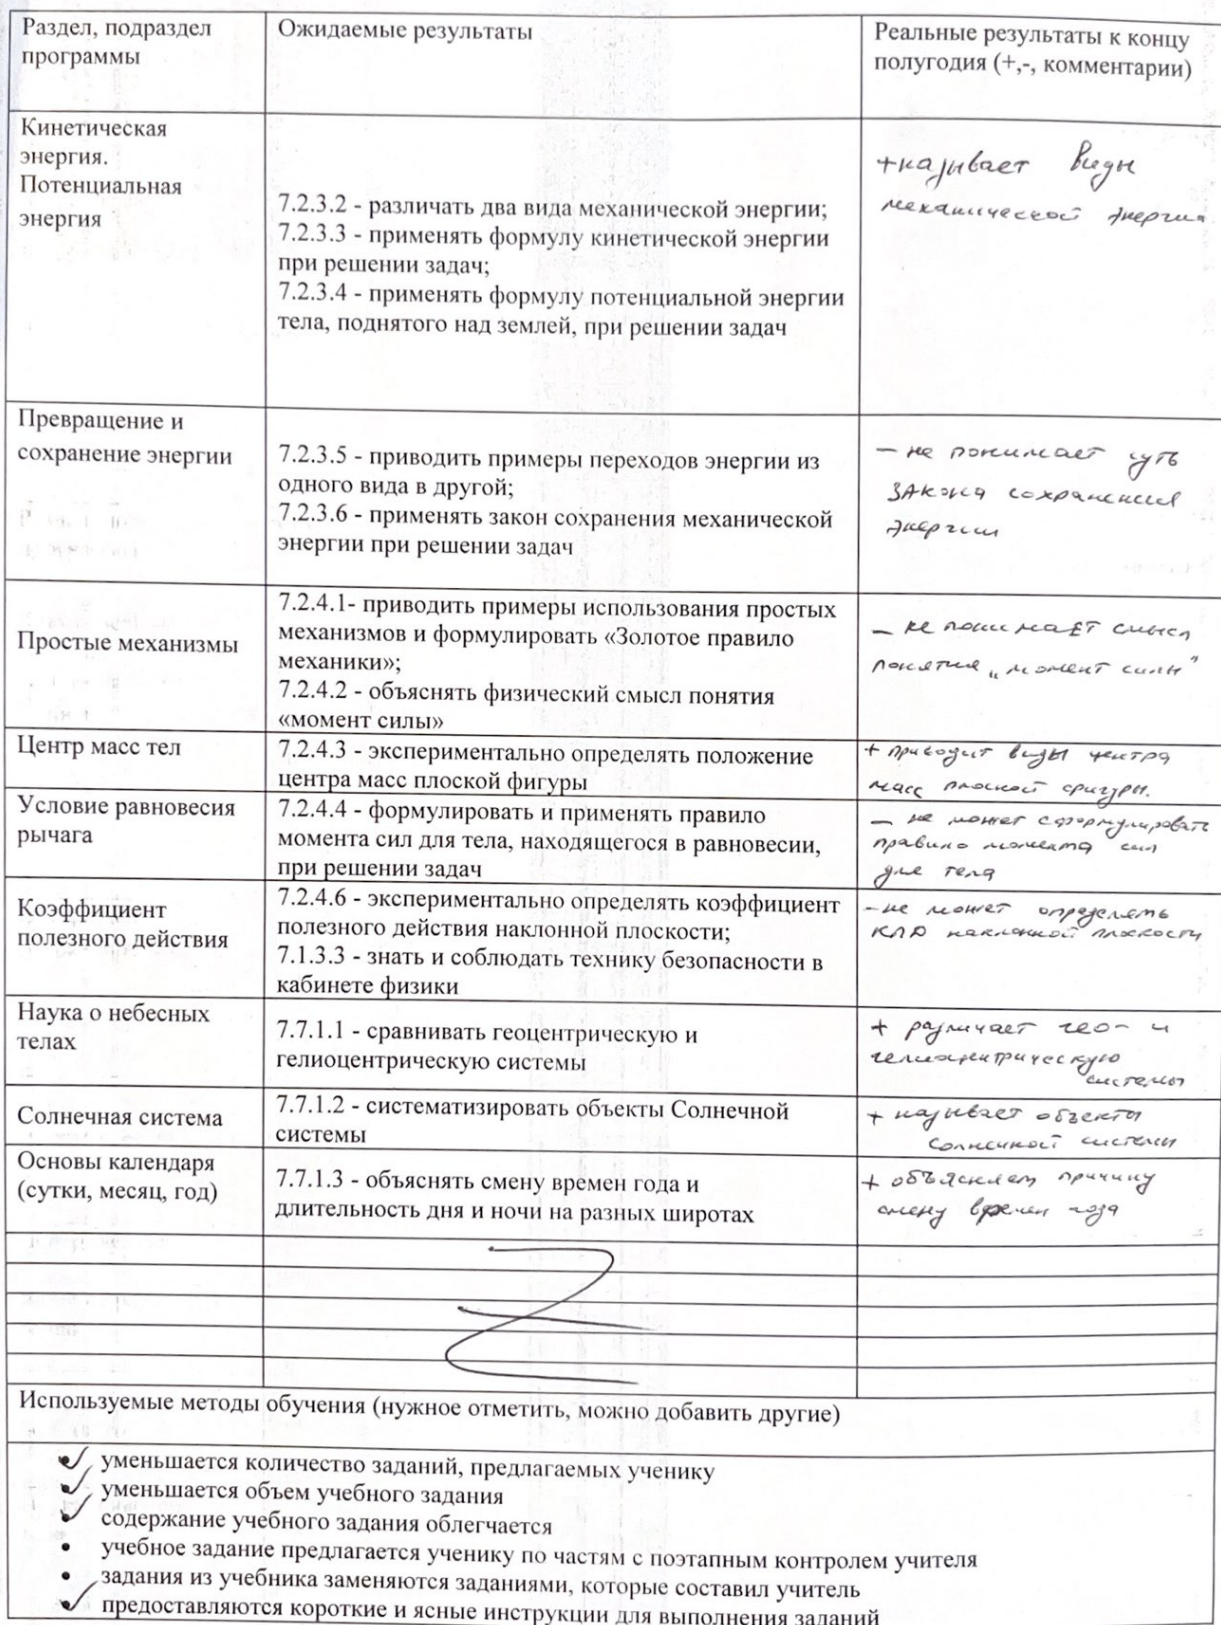 Раздел, подраздел
программы
Ожидаемые результаты
Реальные результаты к концу
полугодия (+,-, комментарии)
Кинетическая
энергия.
Потенциальная
энергия
7.2.3.2 - различать два вида механической энергии;
7.2.3.3 - применять формулу кинетической энергии
при решении задач;
7.2.3.4 - применять формулу потенциальной энергии
тела, поднятого над землей, при решении задач
+ называет виды
механической энергии
Превращение и
сохранение энергии
7.2.3.5 - приводить примеры переходов энергии из
одного вида в другой;
7.2.3.6 - применять закон сохранения механической
энергии при решении задач
- не понимает суть
закона сохранения
энергии
Простые механизмы
7.2.4.1- приводить примеры использования простых
механизмов и формулировать «Золотое правило
механики»;
7.2.4.2 - объяснять физический смысл понятия
«момент силы»
- не понимает смысл
понятия „момент силы"
Центр масс тел
7.2.4.3 - экспериментально определять положение
центра масс плоской фигуры
+ приводит виды центра
масс плоской фигуры.
Условие равновесия
рычага
7.2.4.4 - формулировать и применять правило
момента сил для тела, находящегося в равновесии,
при решении задач
- не может сформулировать
правило момента сил
для тела
Коэффициент
полезного действия
7.2.4.6 - экспериментально определять коэффициент
полезного действия наклонной плоскости;
7.1.3.3 - знать и соблюдать технику безопасности в
кабинете физики
- не может определять
КПД наклонной плоскости
Наука о небесных
телах
7.7.1.1 - сравнивать геоцентрическую и
гелиоцентрическую системы
+ различает гео- и
гелиоцентрическую
системы
Солнечная система
7.7.1.2 - систематизировать объекты Солнечной
системы
+ называет объекты
солнечной системы
Основы календаря
(сутки, месяц, год)
7.7.1.3 - объяснять смену времен года и
длительность дня и ночи на разных широтах
+ объясняет причину
смену времен года
Используемые методы обучения (нужное отметить, можно добавить другие)
уменьшается количество заданий, предлагаемых ученику
уменьшается объем учебного задания
содержание учебного задания облегчается
• учебное задание предлагается ученику по частям с поэтапным контролем учителя
• задания из учебника заменяются заданиями, которые составил учитель
предоставляются короткие и ясные инструкции для выполнения заданий